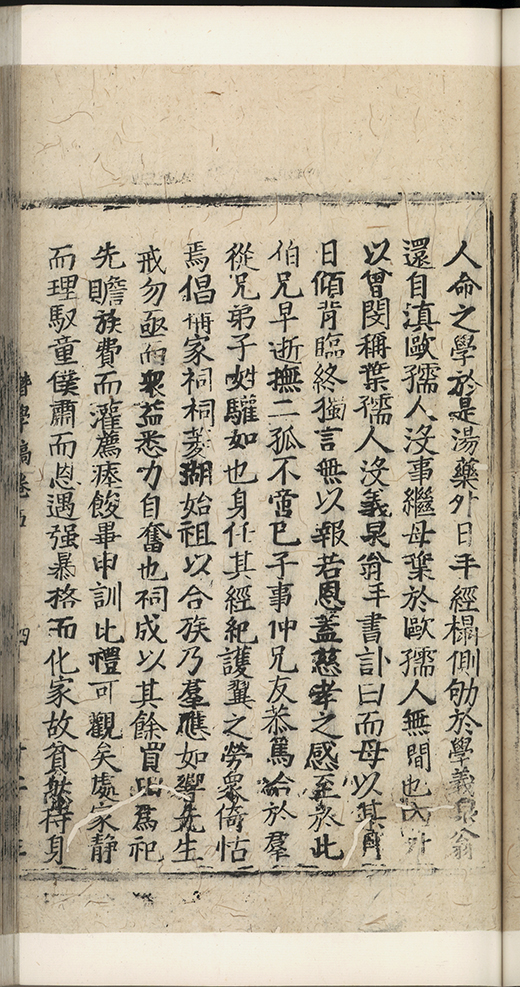 人命之學於是湯藥外日手經榻側劬於學義泉翁
還自滇歐孺人沒事繼母葉於歐孺人無間也內外
以曾閔稱葉孺人沒義泉翁手書訃曰而母以其月
日傾背臨終獨言無以報若恩蓋慈孝之感至於此
伯兄早逝撫二孤不啻己子事仲兄友恭篤洽於羣
從兄弟子姓驩如也身任其經紀護翼之勞衆倚怙
焉倡脩家祠祠菱湖始祖以合族乃羣應如響先生
戒勿亟而衆益悉力自奮也祠成以其餘買田為祀
先贍族費而灌薦瘞餕畢申訓比禮可觀矣處家靜
而理馭童僕肅而恩遇强暴格而化家故貧歉待身
學稿卷五
四